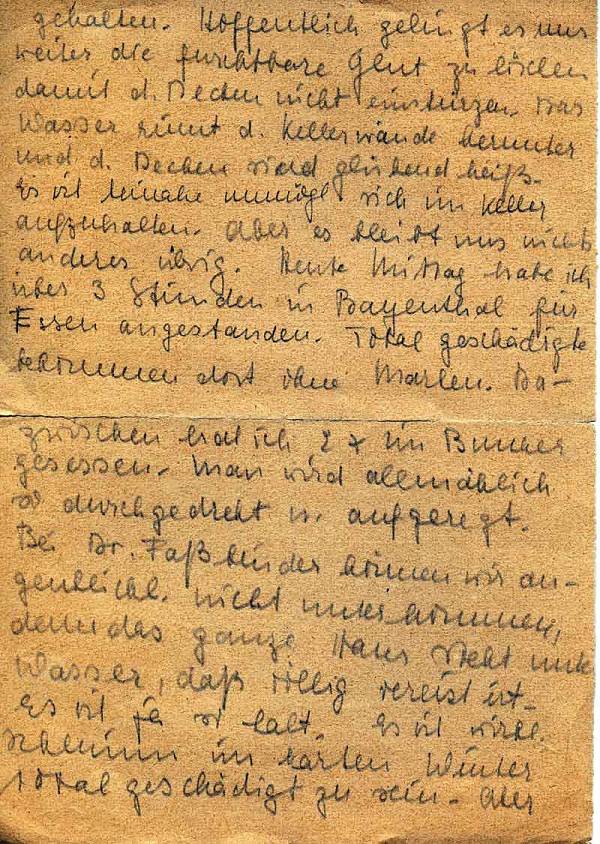 gehalten. Hoffentlich gelingt es uns
weiter die furchtbare Glut zu löschen
damit d. Decken nicht einstürzen. Das
Wasser rinnt d. Kellerwände herunter
und d. Decken sind glühend heiß.
Es ist beinahe unmögl. sich im Keller
aufzuhalten. Aber es bleibt uns nichts
anderes übrig. Heute Mittag habe ich
über 3 Stunden in Bayenthal für
Essen angestanden. Total geschädigte
bekommen dort ohne Marken. Da-
zwischen hab ich 2 x im Bunker
gesessen. Man wird allmählich
so durchgedreht u. aufgeregt.
Bei Dr. Faßbinder können wir au-
genblickl. nicht unterkommen,
denn das ganze Haus steht unter
Wasser, daß völlig vereist ist.
Es ist ja so kalt. Es ist wirkl.
schlimm im harten Winter
total geschädigt zu sein. Aber